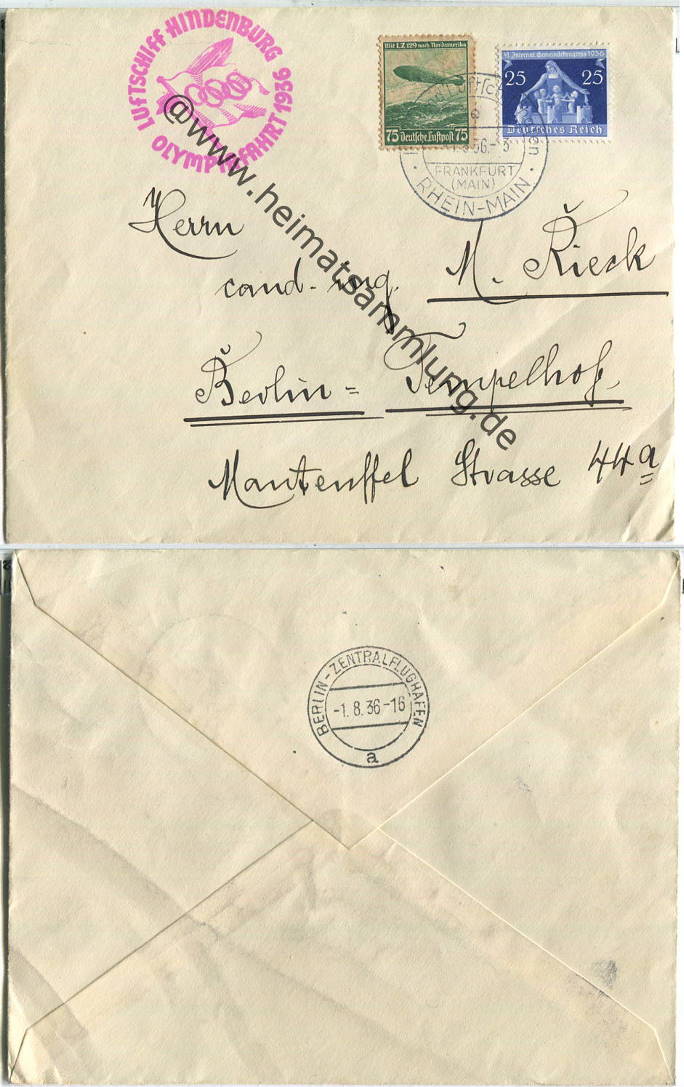 LUFTSCHIFF HINDENBURG
OLYMPIAFAHRT 1936
Mit LZ 129 nach Nordamerika
75 Deutsche Luftpost 75
VI. Internat. Gemeindekongress 1936
25 25
Deutsches Reich
FRANKFURT
(MAIN)
· RHEIN-MAIN ·
@www.heimatsammlung.de
Herrn
cand. ing. M. Rieck
Berlin = Tempelhof
Manteuffel Strasse 44a
BERLIN-ZENTRALFLUGHAFEN
-1.8.36-16
a